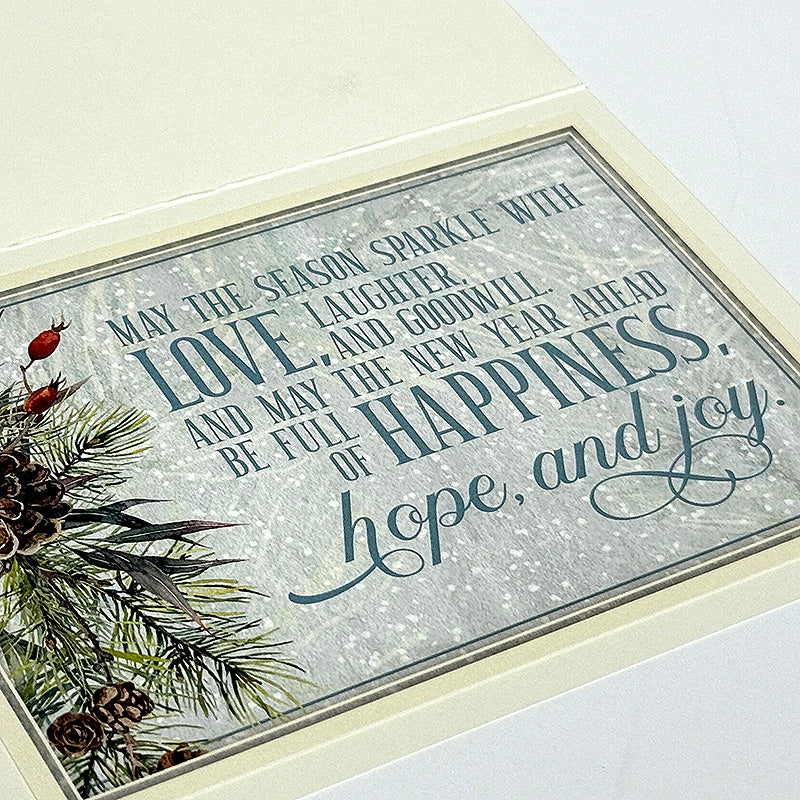 MAY THE SEASON SPARKLE WITH
LOVE, LAUGHTER,
AND GOODWILL.
AND MAY THE NEW YEAR AHEAD
BE FULL
OF HAPPINESS,
hope, and joy.